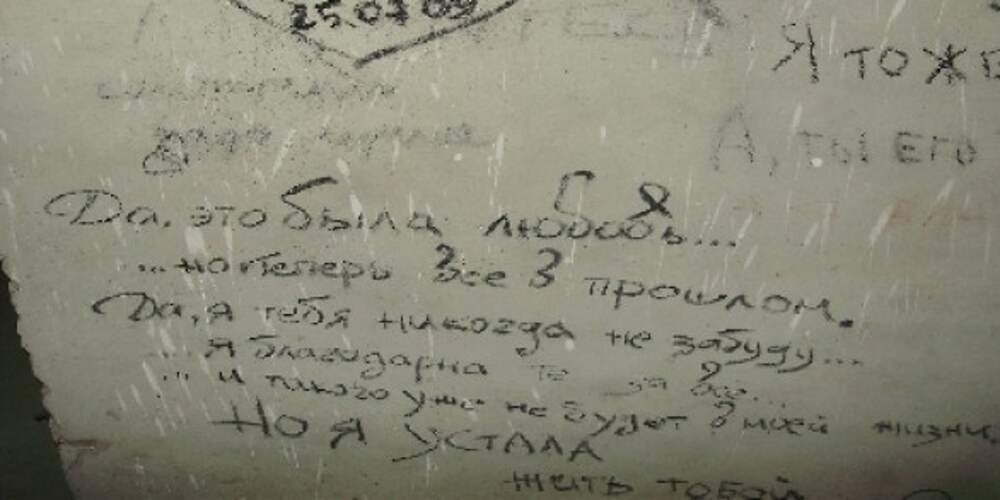 25.07.09
Я ТОЖЕ
А, ТЫ ЕГО
Да, это была любовь...
...но теперь все в прошлом.
Да, я тебя никогда не забуду...
...я благодарна те за все...
...и такого уже не будет в моей жизни,
Но я УСТАЛА
жить тобой